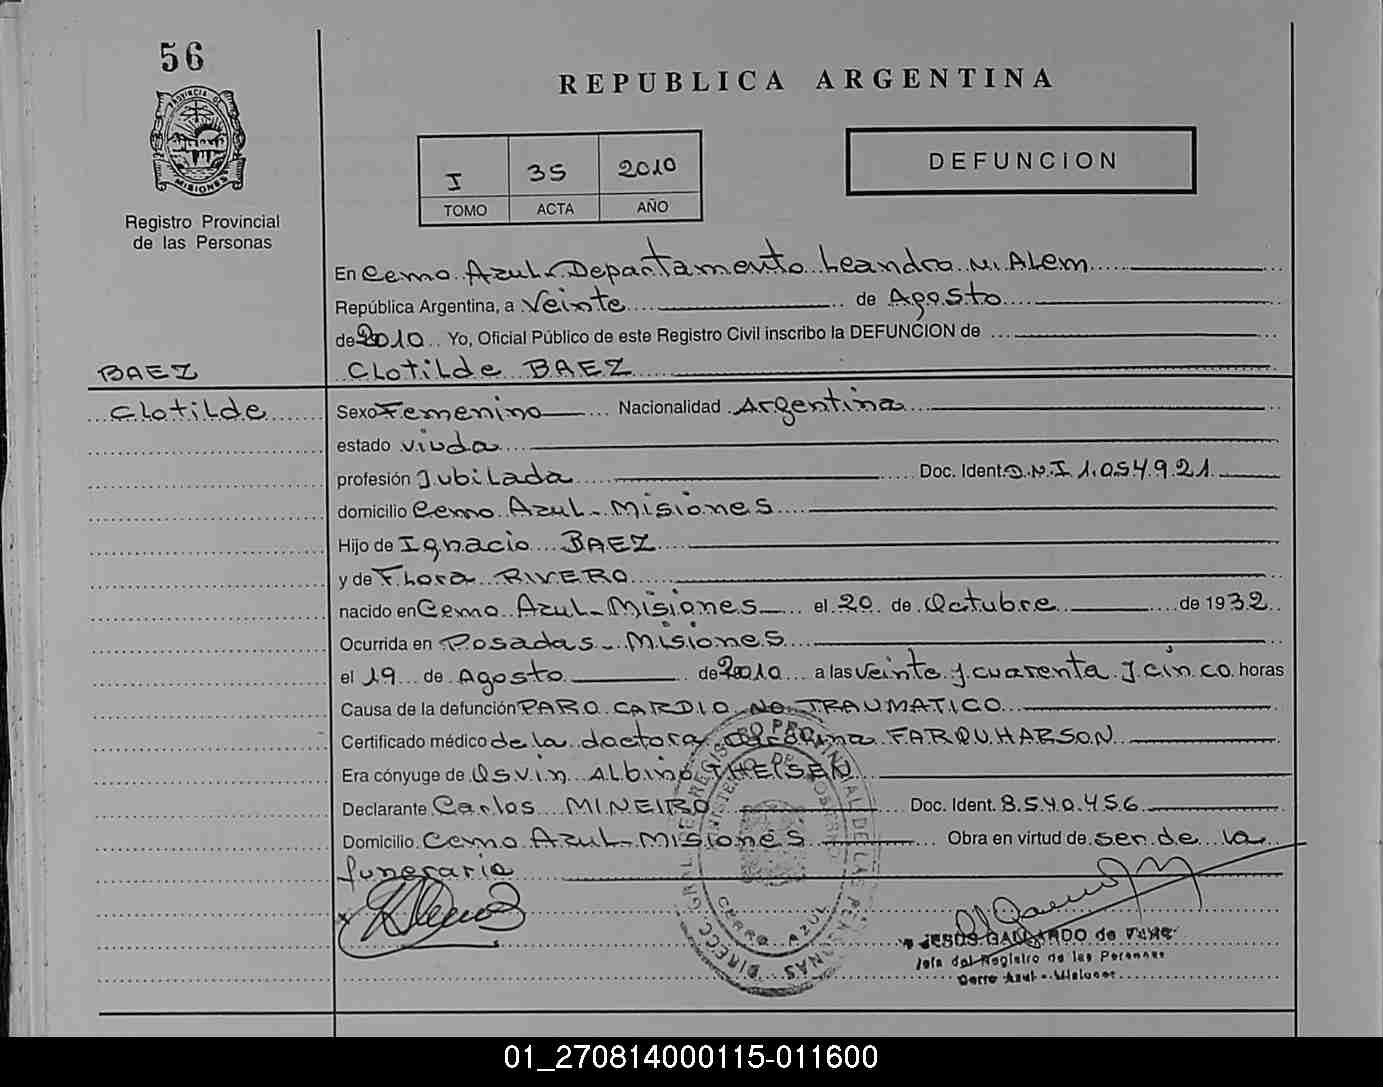 56
REPUBLICA ARGENTINA
PROVINCIA DE
MISIONES
Registro Provincial
de las Personas
I 35 2010
TOMO ACTA AÑO
DEFUNCION
En Cerro Azul - Departamento Leandro N. Alem
República Argentina, a Veinte de Agosto
de 2010 Yo, Oficial Público de este Registro Civil inscribo la DEFUNCION de
BAEZ Clotilde BAEZ
Clotilde Sexo Femenino Nacionalidad Argentina
estado viuda
profesión Jubilada Doc. Ident. D.N.I 1.054.921
domicilio Cerro Azul - Misiones
Hijo de Ignacio BAEZ
y de Flora RIVERO
nacido en Cerro Azul - Misiones el 20 de Octubre de 1932
Ocurrida en Posadas - Misiones
el 19 de Agosto de 2010 a las veinte y cuarenta y cinco horas
Causa de la defunción PARO CARDIO NO TRAUMATICO
Certificado médico de la doctora FARQUHARSON
Era cónyuge de Osvin Albino THEISEN
Declarante Carlos MINEIRO Doc. Ident. 8.540.456
Domicilio Cerro Azul - Misiones Obra en virtud de ser de la
funeraria
CERRO AZUL
JESUS GALLARDO de
Jefa del Registro de las Personas
Cerro Azul - Misiones
01_270814000115-011600